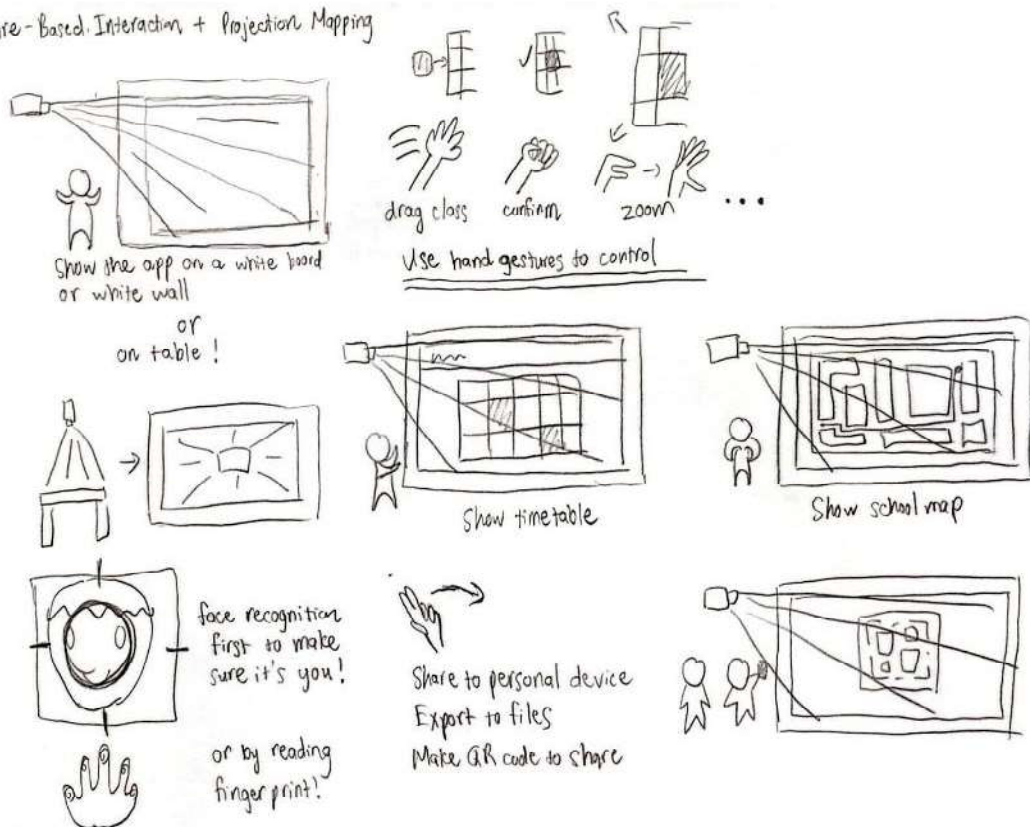 re-Based Interaction + Projection Mapping
Show the app on a white board
or white wall
or
on table!
drag class
confirm
zoom
...
Use hand gestures to control
Show timetable
Show school map
face recognition
first to make
sure it's you!
or by reading
fingerprint!
Share to personal device
Export to files
Make QR code to share